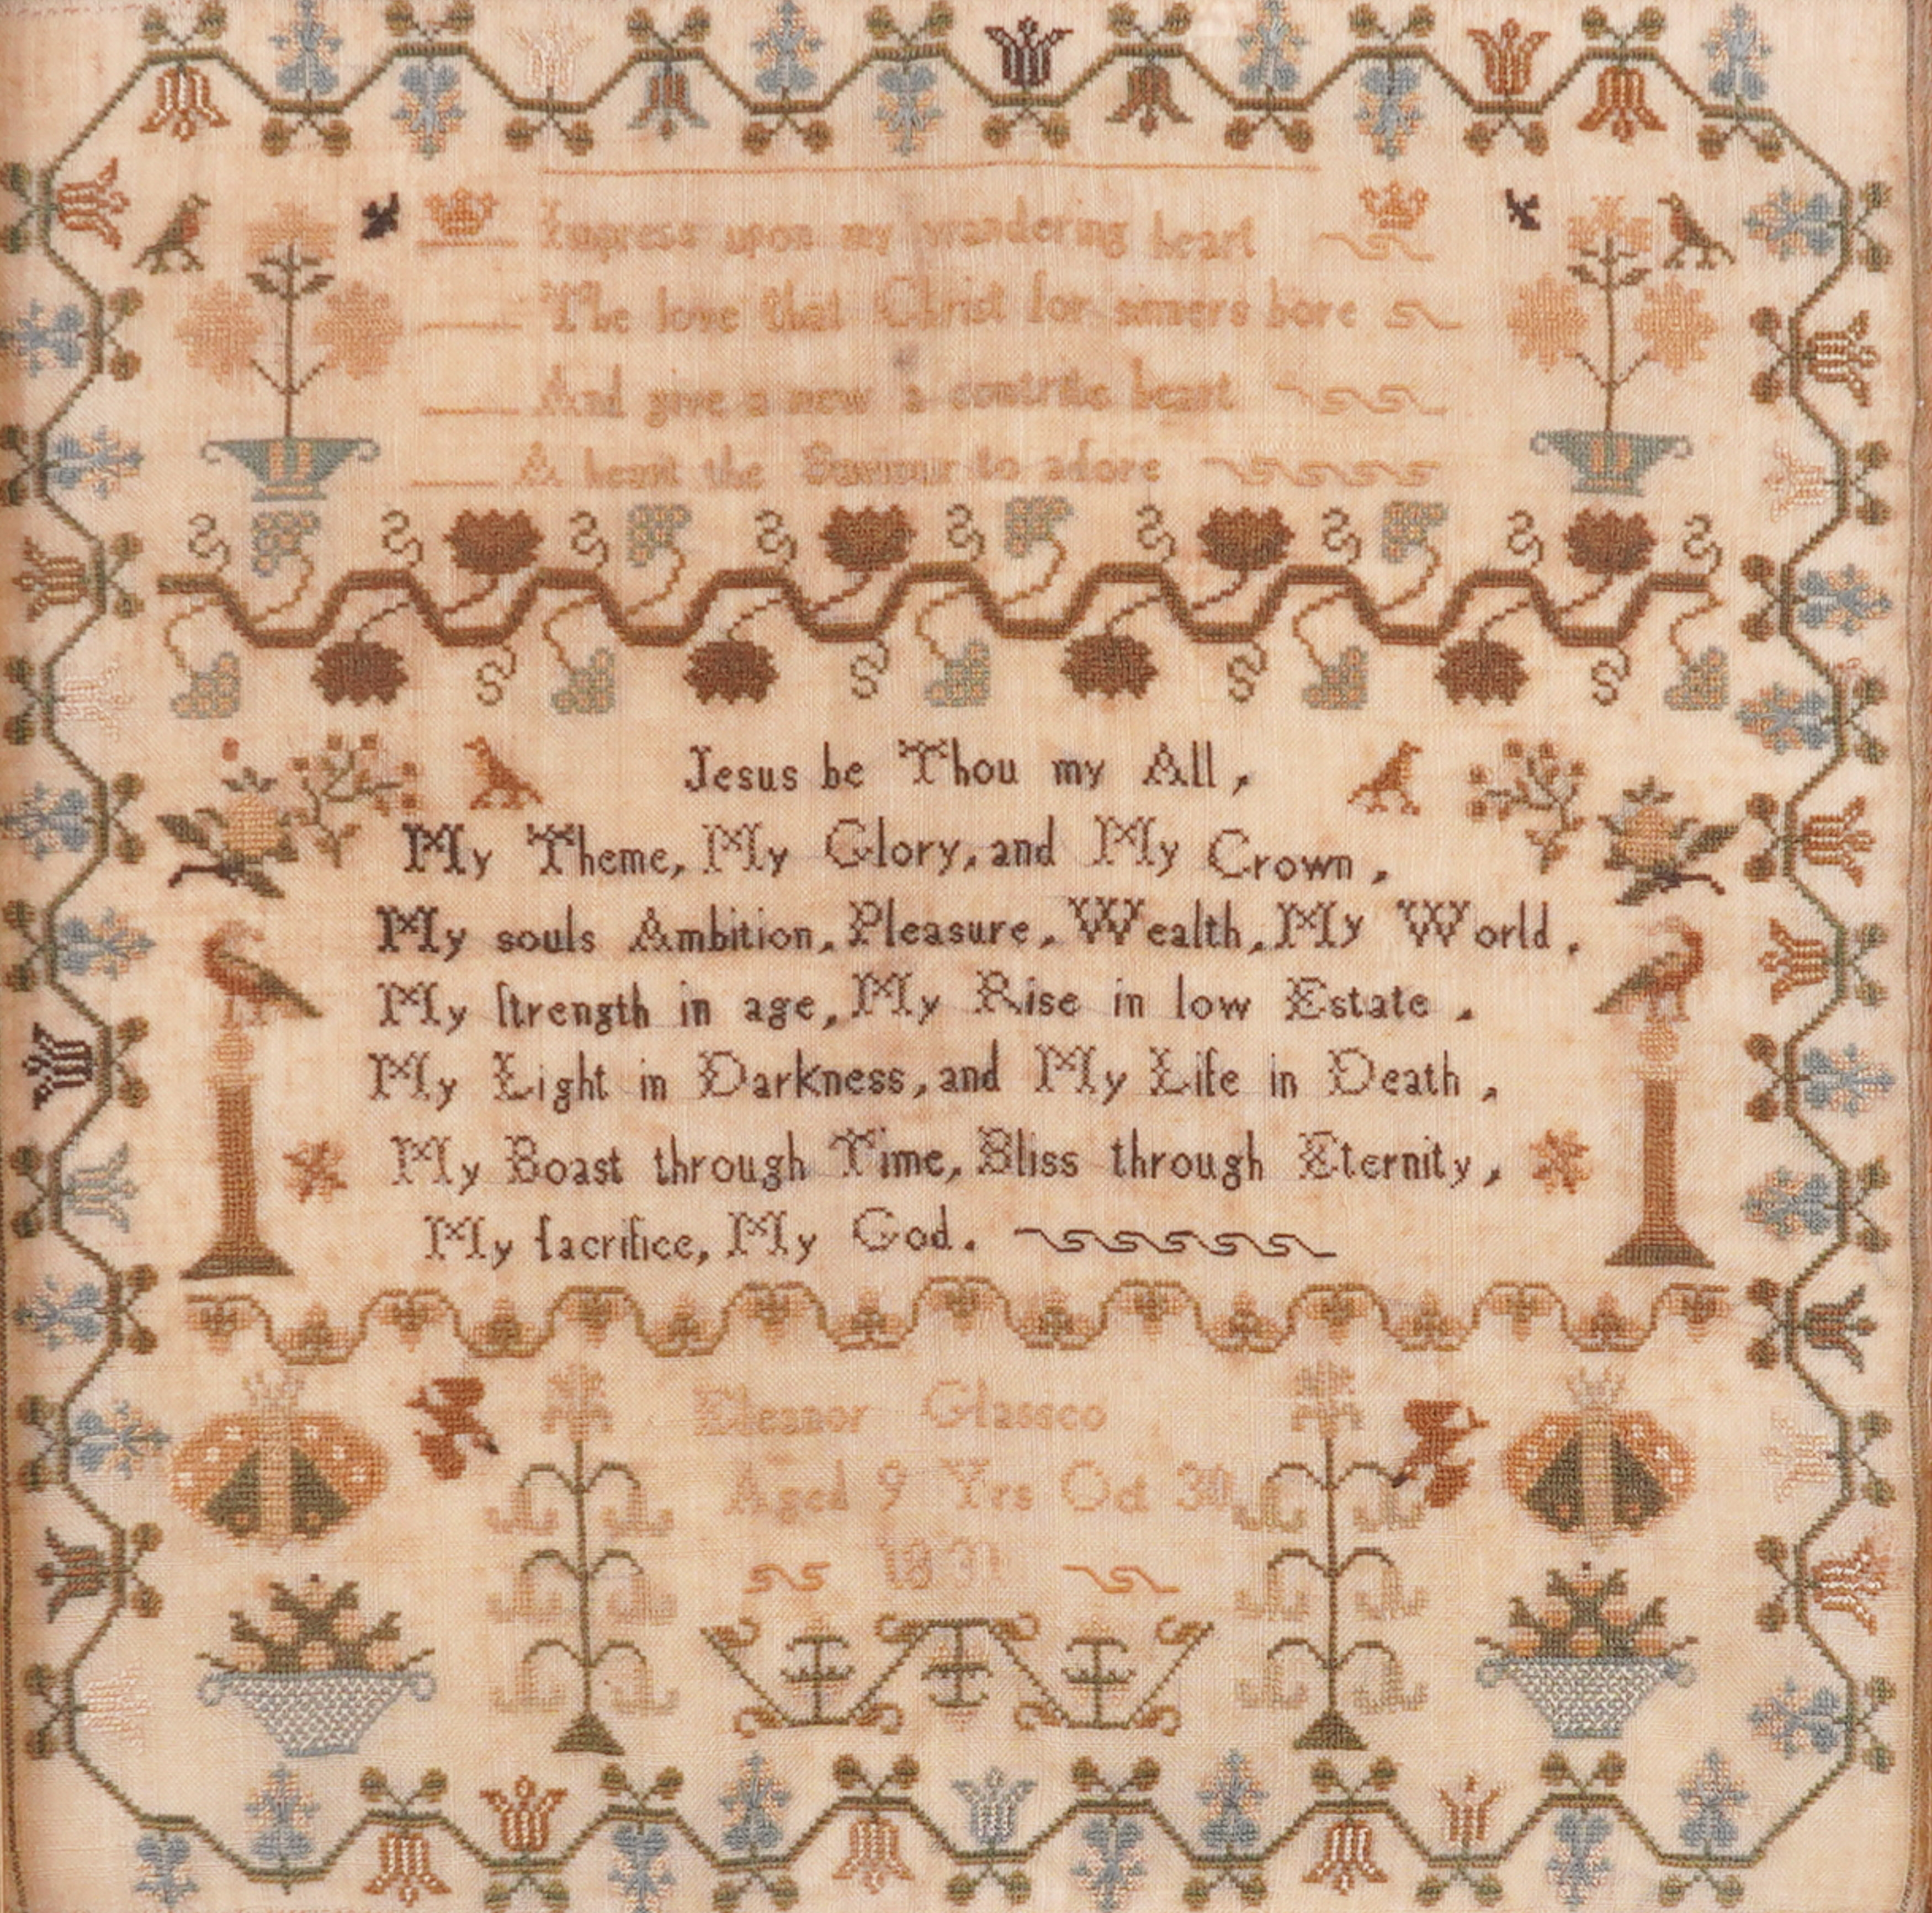 Impress upon my wandering heart
The love that Christ for sinners bore
And give a new a contrite heart
A heart the Saviour to adore
Jesus be Thou my All,
My Theme, My Glory, and My Crown,
My souls Ambition, Pleasure, Wealth, My World,
My ſtrength in age, My Rise in low Estate,
My Light in Darkness, and My Life in Death,
My Boast through Time, Bliss through Eternity,
My ſacrifice, My God.
Eleanor Glassco
Aged 9 Yrs Oct 30
1831